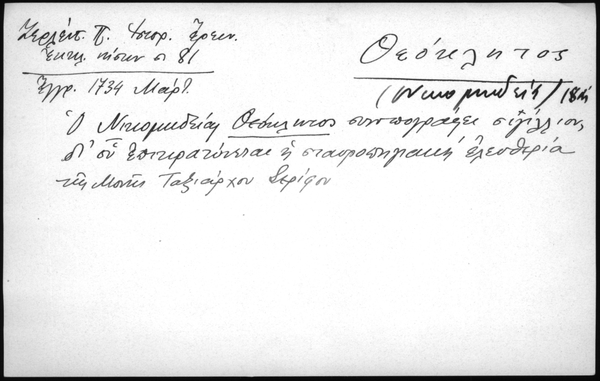 Ζερλέντ. Π. Ἱστορ. Ἔρευν.
Ἐκκλ. νήσων σ 81
Ἔγγρ. 1734 Μάρτ.
Θεόκλητος
(Νικομηδείας) 18ος
Ὁ Νικομηδείας Θεόκλητος συνυπογράφει σιγίλλιον,
δι' οὗ ἐπικρατύνεται ἡ σταυροπηγιακή ἐλευθερία
τῆς Μονῆς Ταξιάρχου Σερίφου